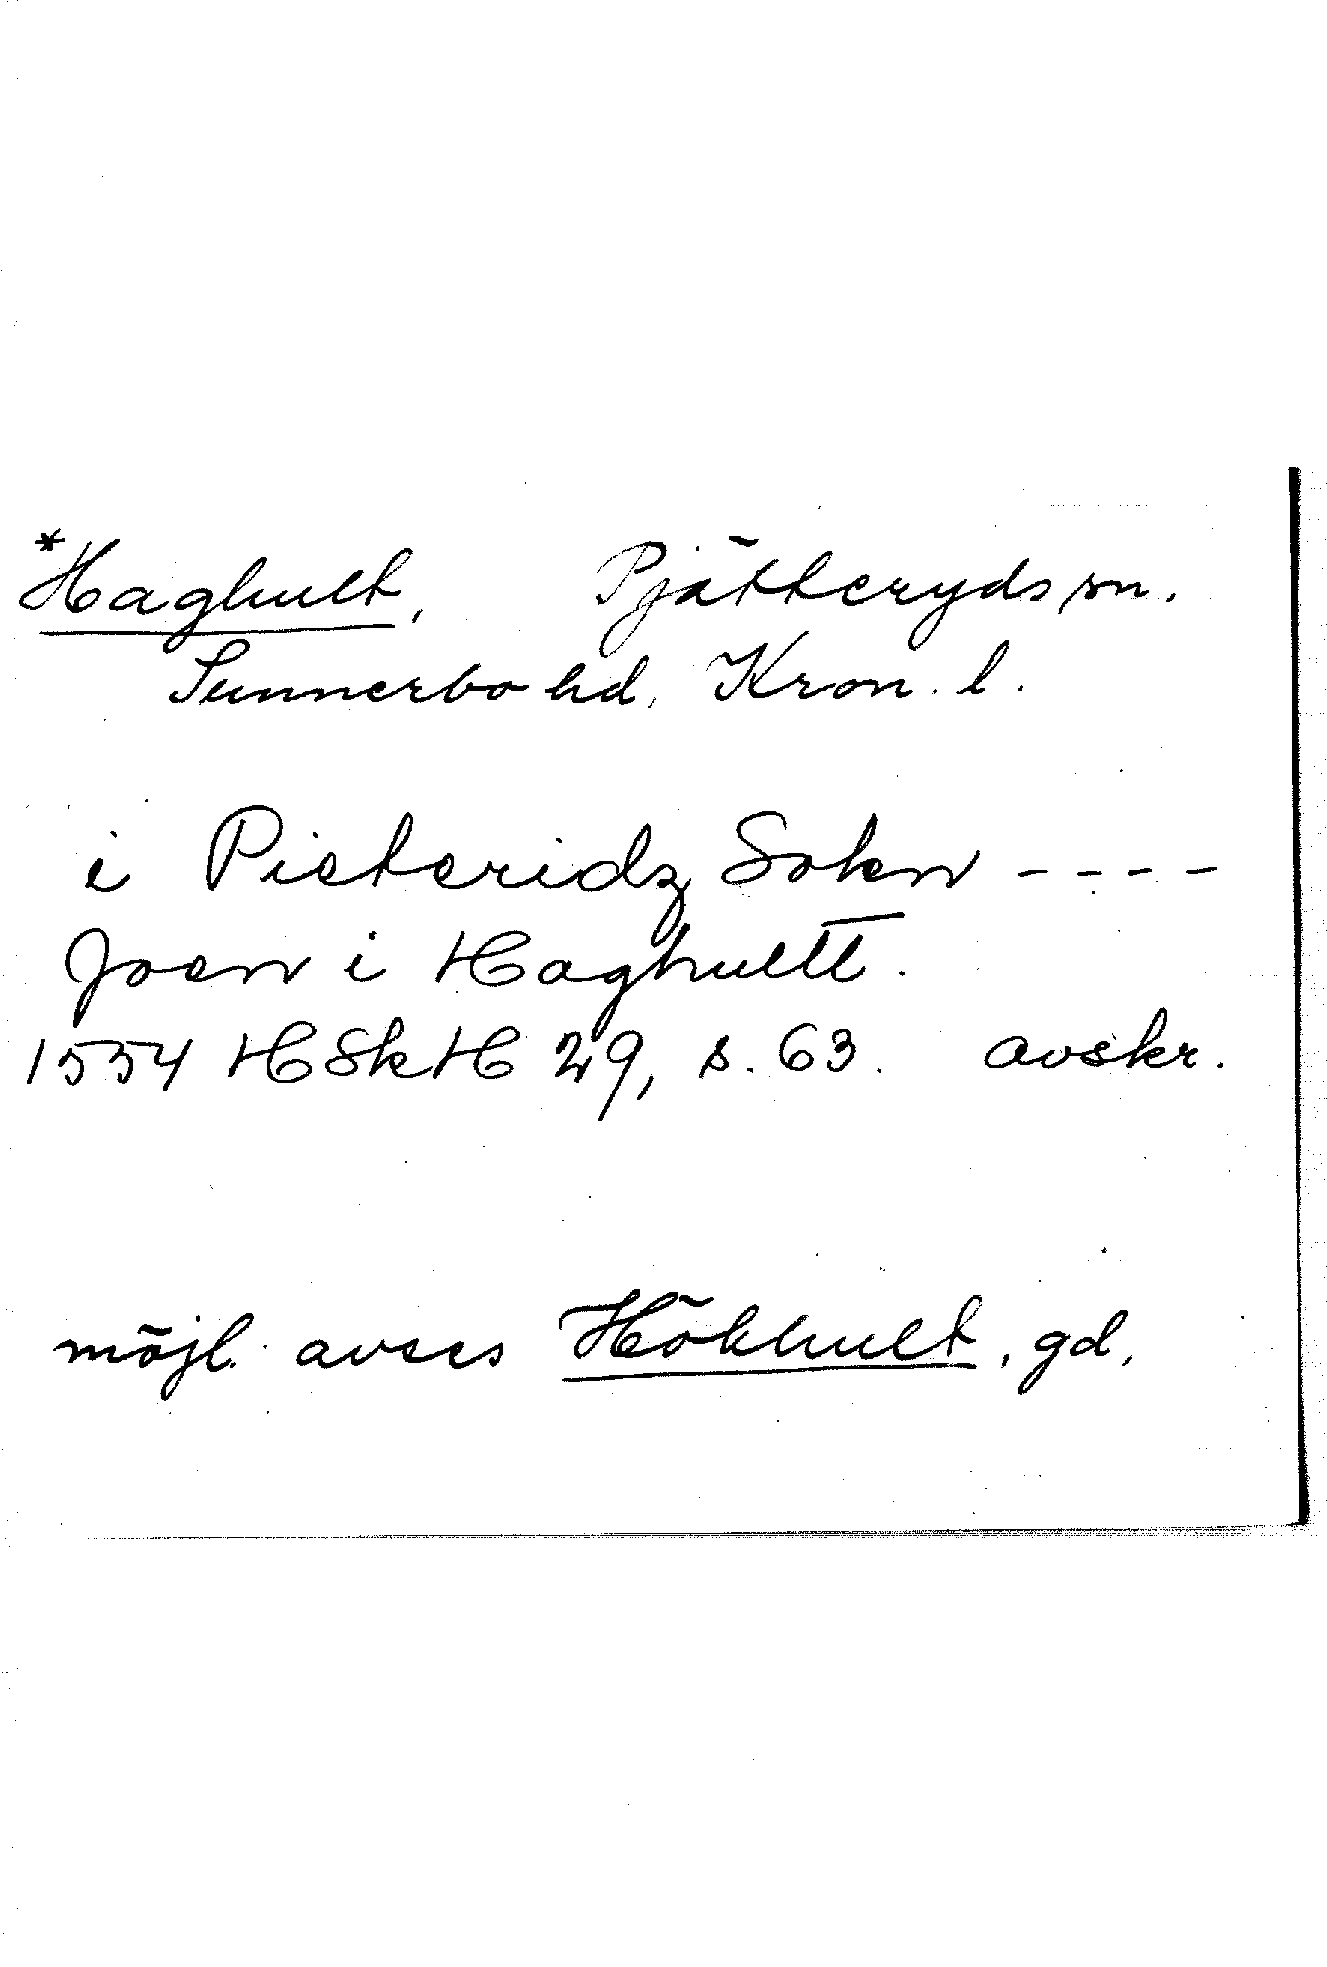 *Haghult, Pjätteryds sn.
Sunnerbo hd, Kron. l.
i Pieteridz Sokn ----
Joen i Haghultt.
1554 HSkH 29, s. 63. avskr.
möjl. avses Hökhult, gd,